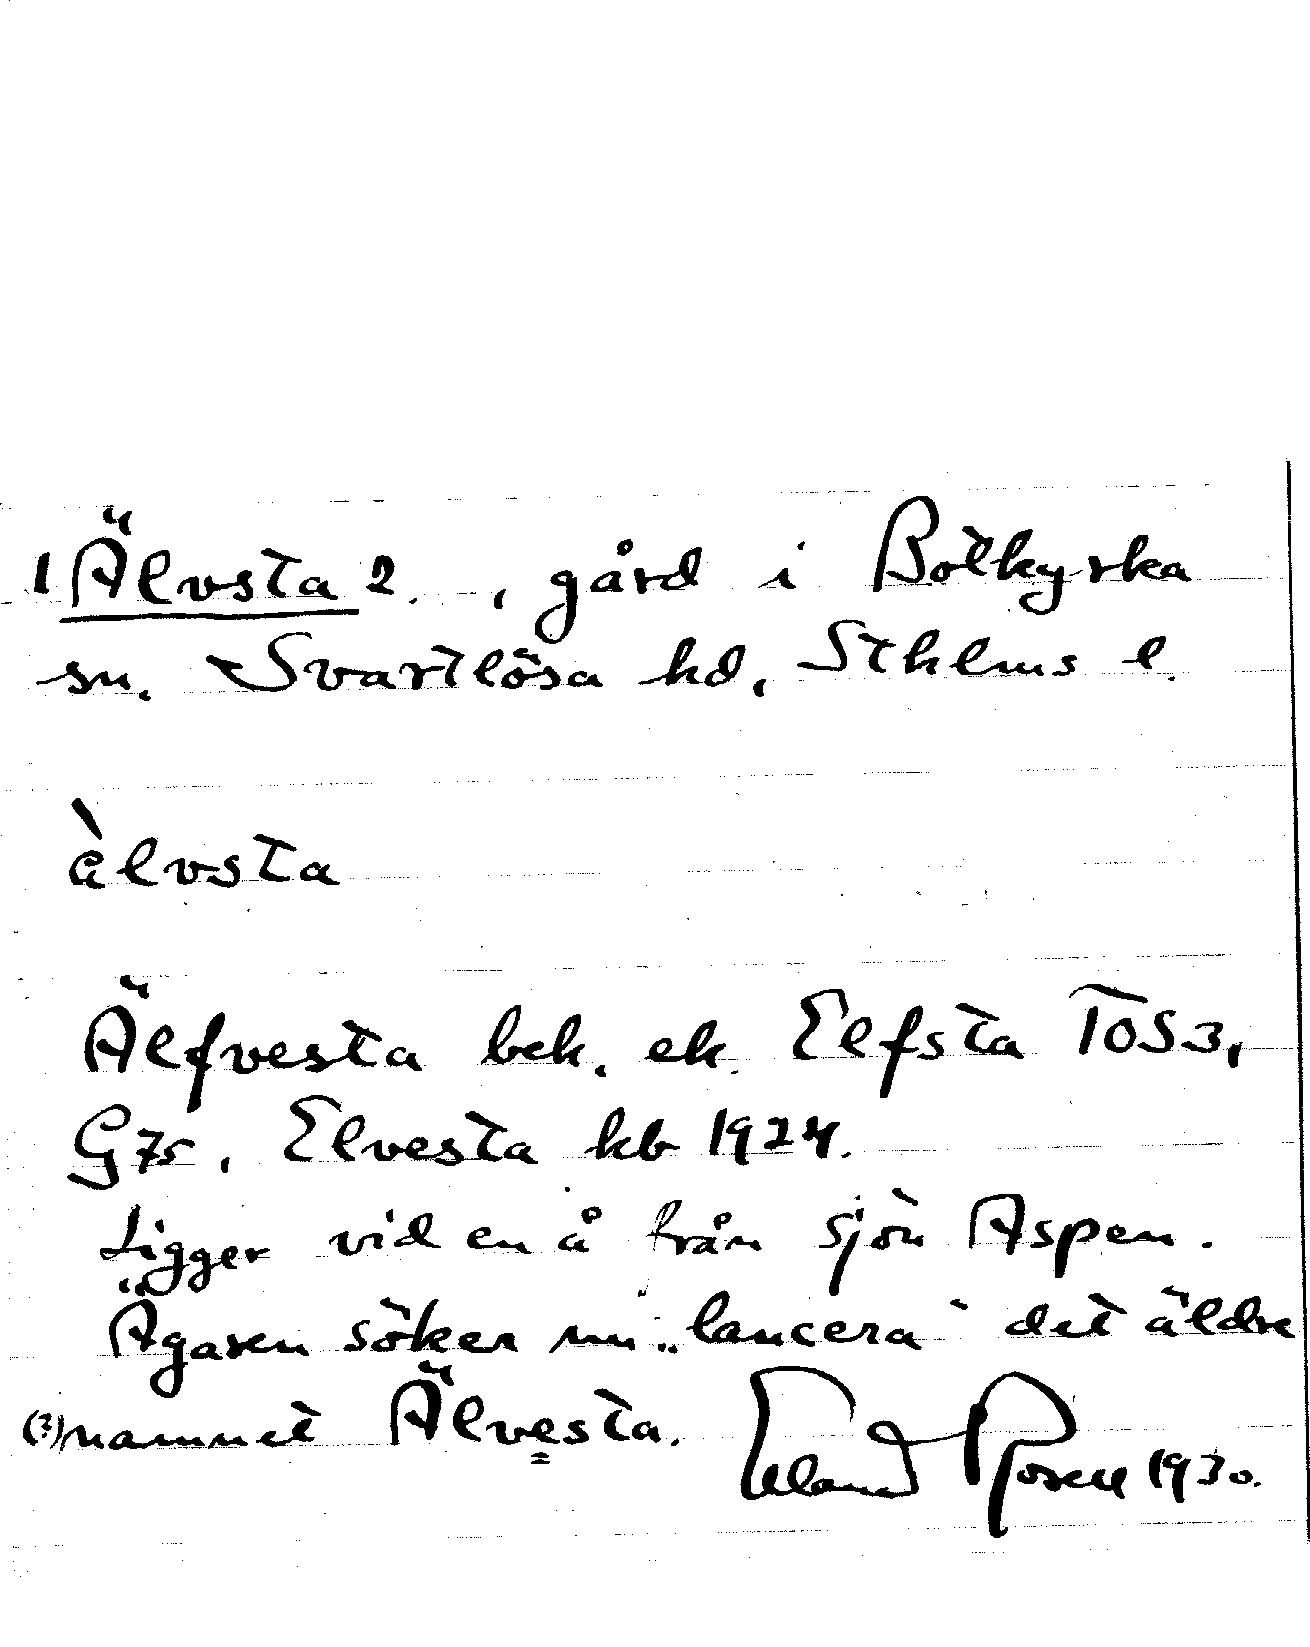 1 Älvsta 2. , gård i Botkyrka
sn. Svartlösa hd, Sthlms l.
àlvsta
Älfvesta bek. ek. Elfsta TOS3,
G75, Elvesta kb 1924.
Ligger vid en å från sjön Aspen.
Ägaren söker nu „lancera" det äldre
(?) namnet Älvesta. Erland Rosell 1930.